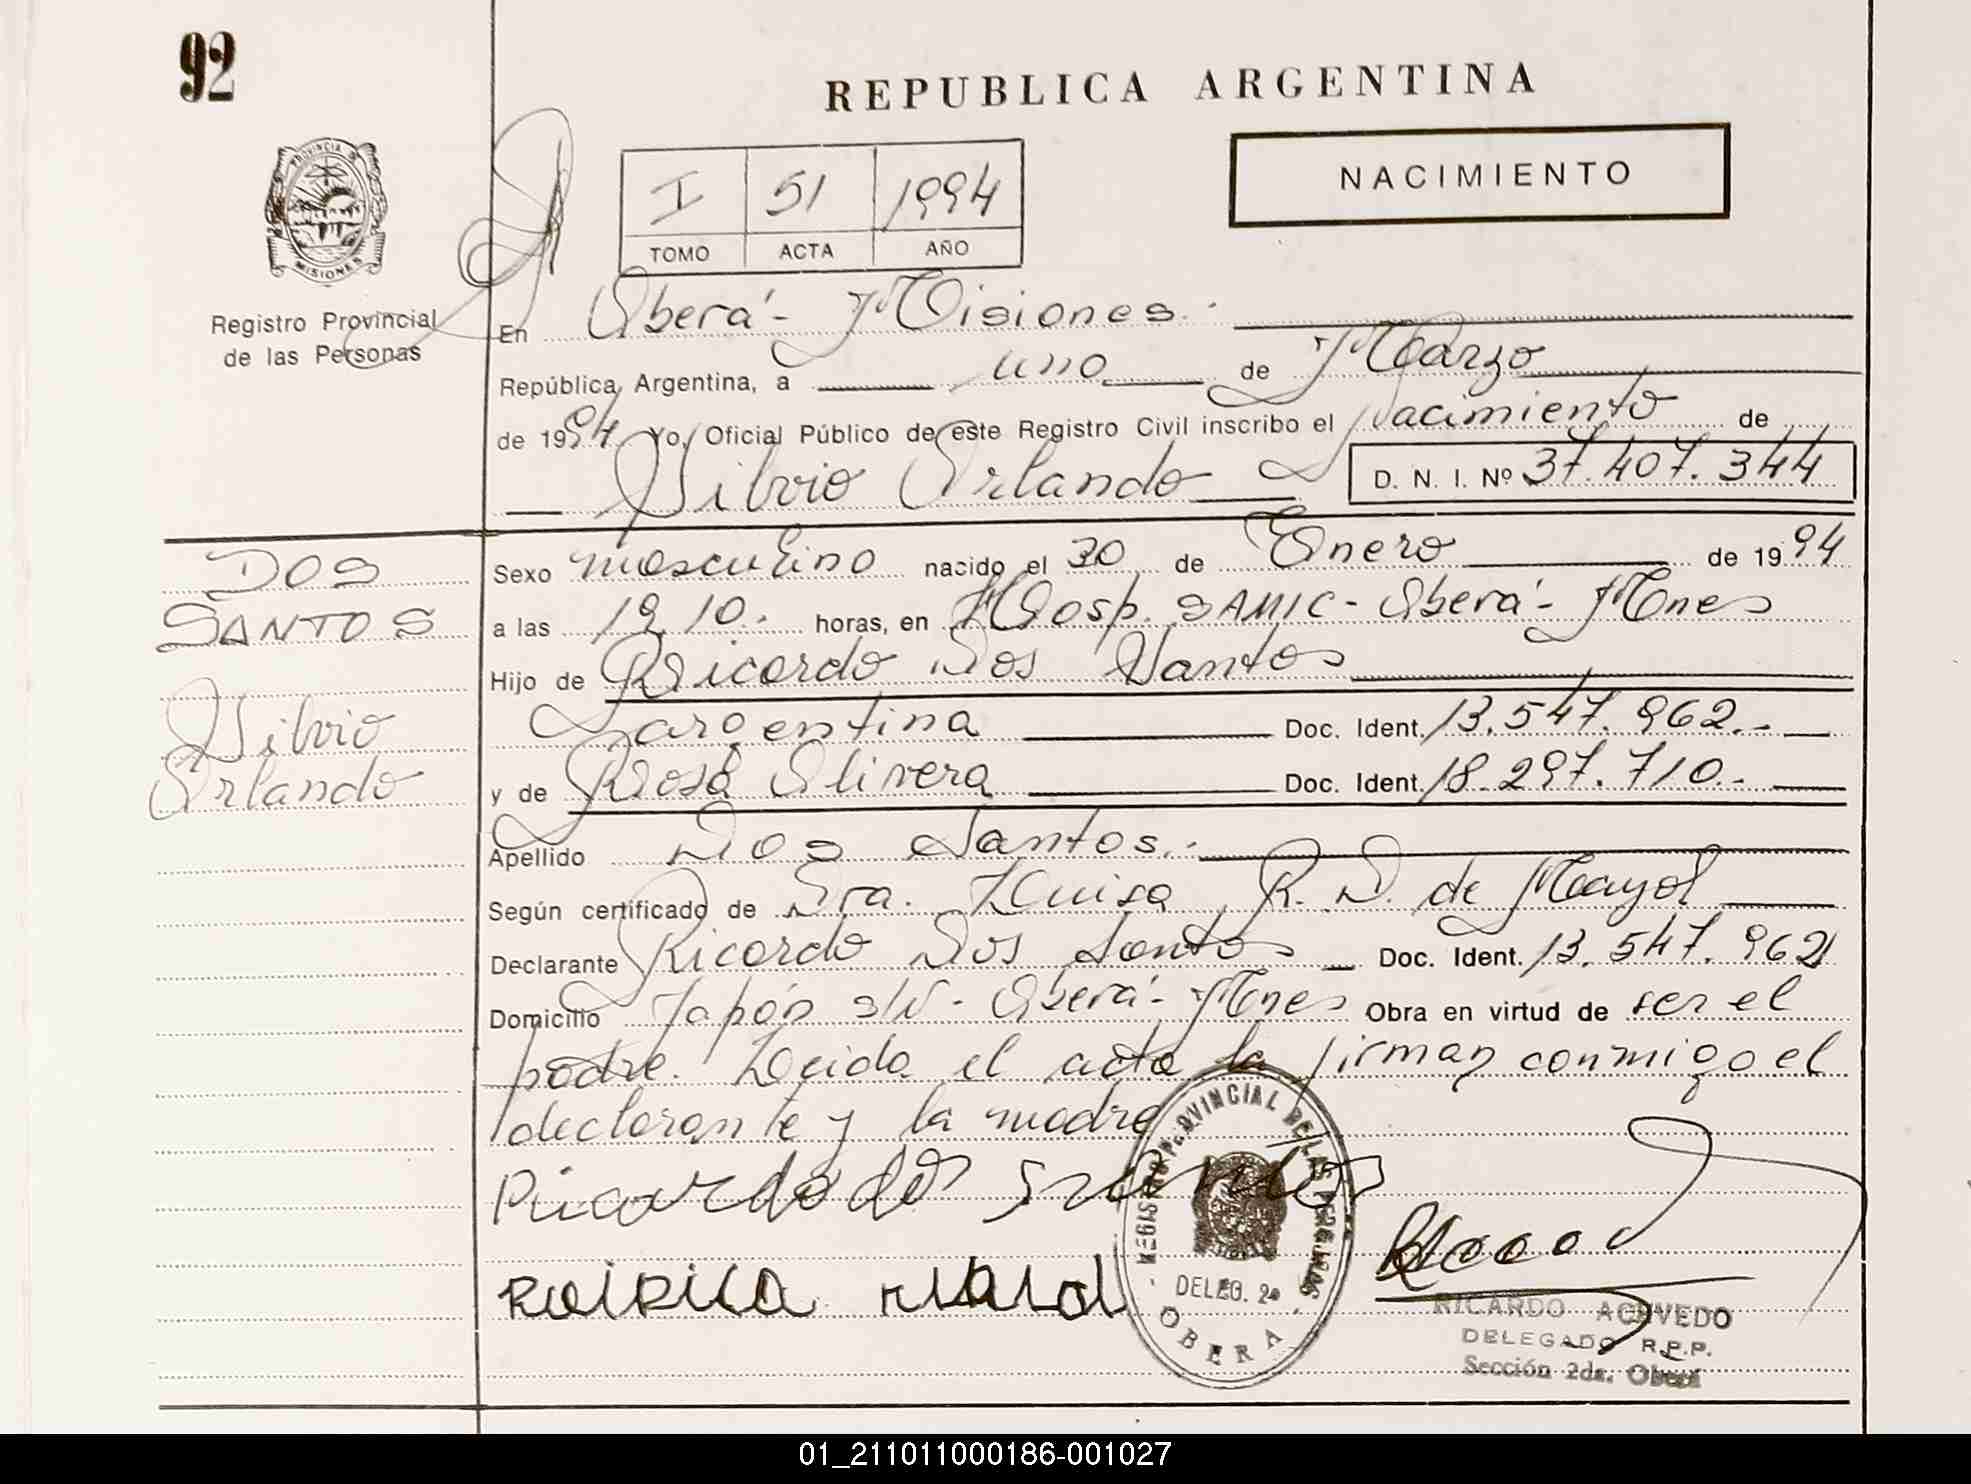 92
REPUBLICA ARGENTINA
PROVINCIA D
MISIONES
Registro Provincial
de las Personas
I 51 1994
TOMO ACTA AÑO
NACIMIENTO
En Oberá - Misiones.
República Argentina, a uno de Marzo
de 1994 Yo, Oficial Público de este Registro Civil inscribo el Nacimiento de
Silvio Orlando D. N. I. Nº 37.407.344
DOS
SANTOS
Silvio
Orlando
Sexo masculino nacido el 30 de Enero de 1994
a las 19 10. horas, en Hosp. SAMIC - Oberá - Mnes
Hijo de Ricardo Dos Santos
argentina Doc. Ident. 13.547.962.-
y de Rosa Olivera Doc. Ident. 18.297.710.-
Apellido Dos Santos.-
Según certificado de Dra. Luisa R. D. de Mayol
Declarante Ricardo Dos Santos Doc. Ident. 13.547.962
Domicilio Japón s/N - Oberá - Mnes Obra en virtud de ser el
padre. Leida el acta la firman conmigo el
declarante y la madre
Ricardo dos Santos
REGISTRO PROVINCIAL DE LAS PERSONAS
DELEG. 2a
OBERA
RICARDO ACEVEDO
DELEGADO R.P.P.
Sección 2da. Oberá
01_211011000186-001027